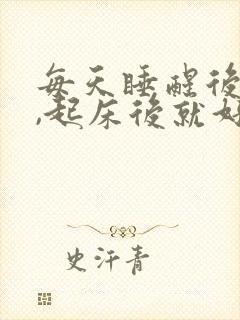 每天睡醒後
,起床後就好
史汗青